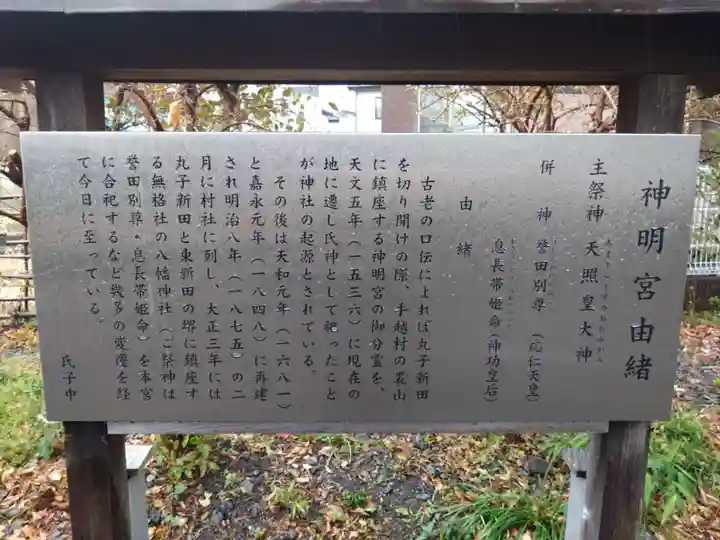 神明宮由緒
主祭神 天照皇大神
併神 誉田別尊(応仁天皇)
息長帯姫命(神功皇后)
由緒
古老の口伝によれば丸子新田
を切り開けの際、手越村の裏山
に鎮座する神明宮の御分霊を、
天文五年(一五三六)に現在の
地に遷し氏神として祀ったこと
が神社の起源とされている。
その後は天和元年(一六八一)
と嘉永元年(一八四八)に再建
され明治八年(一八七五)の二
月に村社に列し、大正三年には
丸子新田と東新田の堺に鎮座す
る無格社の八幡神社(ご祭神は
誉田別尊・息長帯姫命)を本宮
に合祀するなど幾多の変遷を経
て今日に至っている。
氏子中